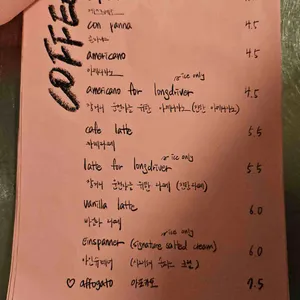 COFFEE
con panna 4.5
americano 4.5
아메리카노
ice only
americano for longdriver 4.5
장거리 운전자를 위한 아메리카노
cafe latte 5.5
카페라떼
ice only
latte for longdriver 5.5
장거리 운전자를 위한 라떼
vanilla latte 6.0
바닐라 라떼
ice only
Einspanner (signature salted cream) 6.0
아인슈페너
♡ affogato 아포가토 7.5